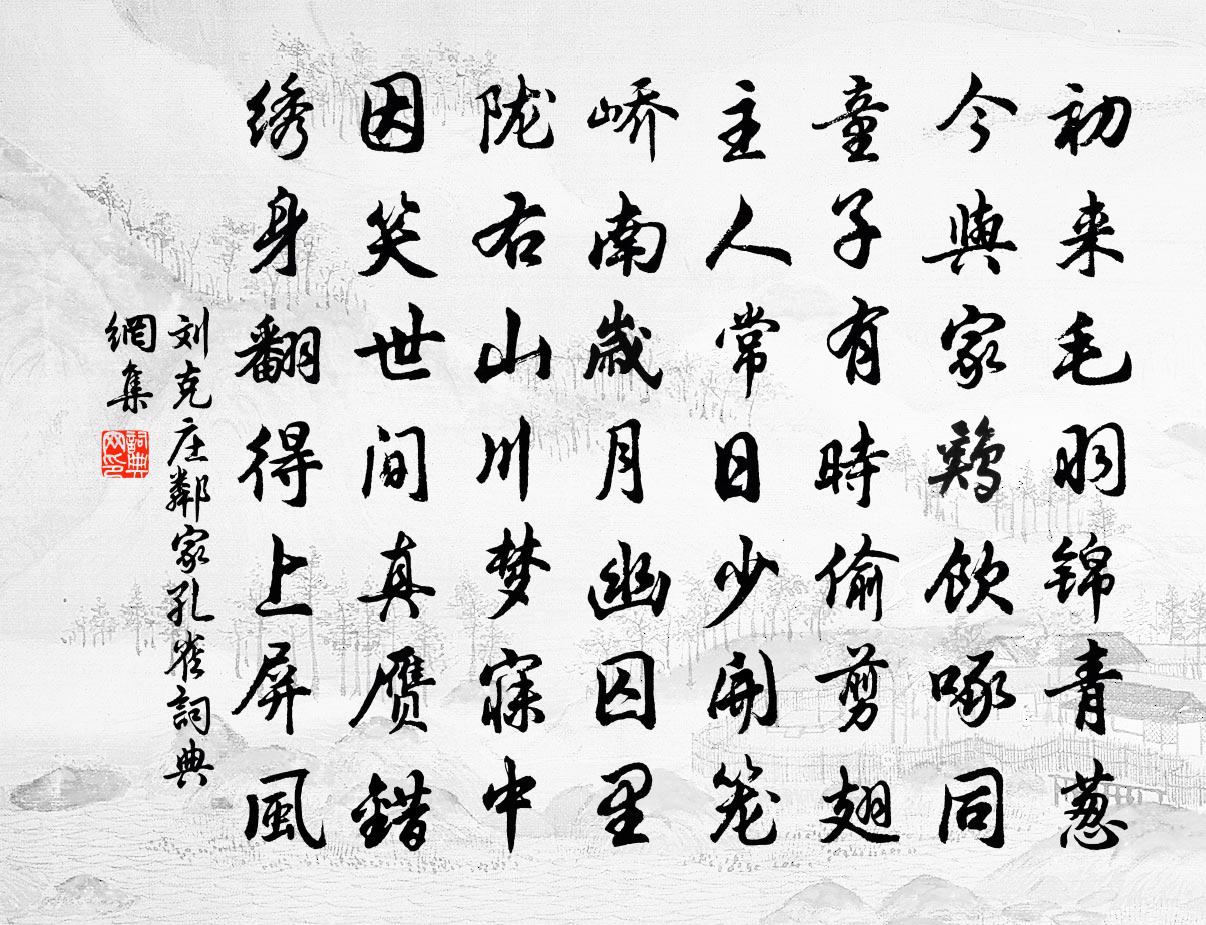 初来毛羽锦青葱
今與家鶏飲啄同
童子有時偷剪翅
主人常日少開笼
峤南歲月幽囚里
陇右山川梦寐中
因笑世间真赝錯
绣身翻得上屏風
刘克庄鄰家孔雀詞典
網集
詞典
网印